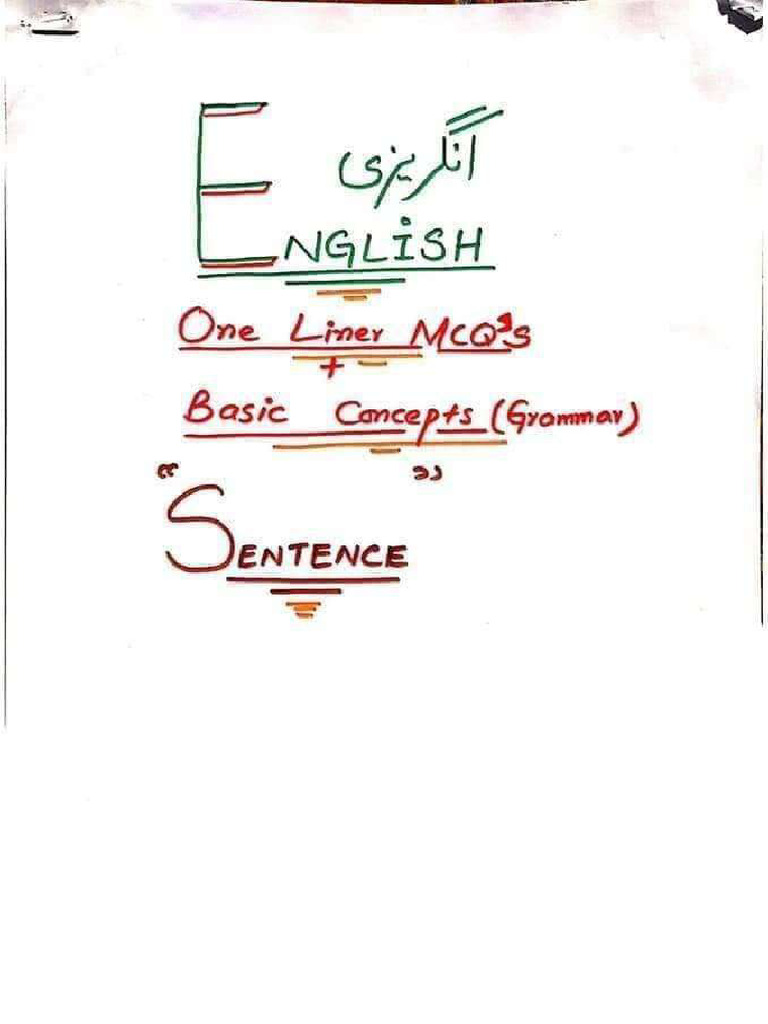 انگریزی
ENGLİSH
One Liner MCQ's
+
Basic Concepts (Grammar)
“ ”
SENTENCE